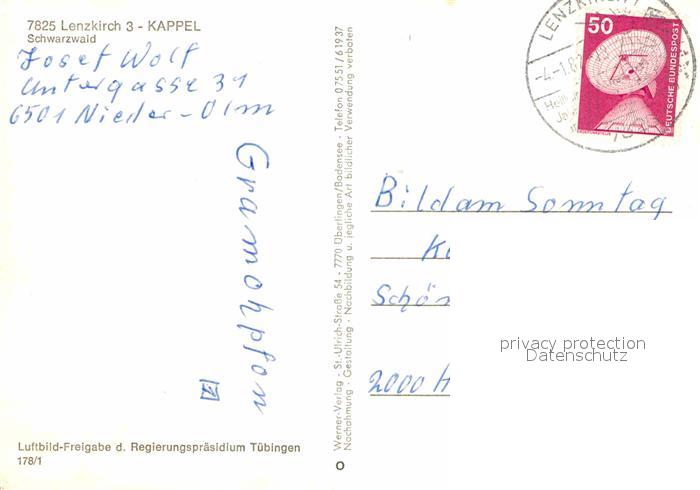 7825 Lenzkirch 3 - KAPPEL
Schwarzwald
Josef Wolf
Untergasse 31
6501 Nieder-Olm
Gramohpfon
Luftbild-Freigabe d. Regierungspräsidium Tübingen
178/1
Werner-Verlag - St.-Ulrich-Straße 54 - 7770 Überlingen/Bodensee - Telefon 07551/61937
Nachahmung - Gestaltung - Nachbildung u. jegliche Art bildlicher Verwendung verboten
LENZKIRCH
-4.-1.8
50
DEUTSCHE BUNDESPOST
Bild am Sonntag
Schön
2000 H
privacy protection
Datenschutz